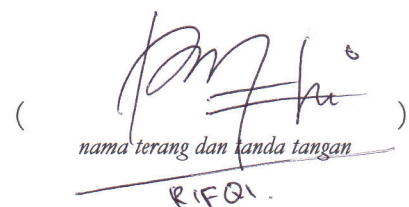 ( )
nama terang dan tanda tangan
RIFQI.